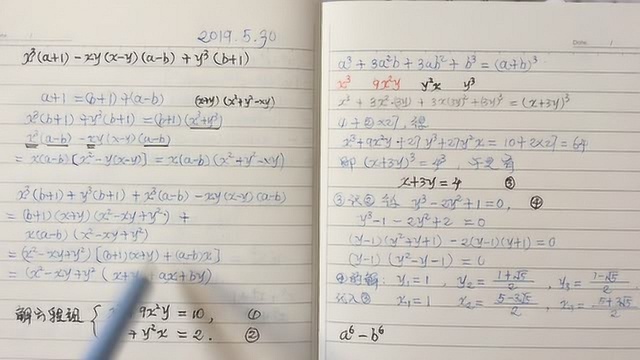 2019.5.30
x³(a+1) - xy(x-y)(a-b) + y³(b+1)
a+1 = (b+1)+(a-b)
(x+y)(x²+y²-xy)
x³(b+1) + y³(b+1) = (b+1)(x³+y³)
x³(a-b) - xy(x-y)(a-b)
= x(a-b)[x²-y(x-y)] = x(a-b)(x²+y²-xy)
x³(b+1) + y³(b+1) + x³(a-b) - xy(x-y)(a-b)
= (b+1)(x+y)(x²-xy+y²) +
x(a-b)(x²-xy+y²)
= (x²-xy+y²)[(b+1)(x+y)+(a-b)x]
= (x²-xy+y²(x+y+ax+by)
解方程组 { 9x²y = 10, ①
+ y²x = 2. ②
Date. /
a³ + 3a²b + 3ab² + b³ = (a+b)³
x³ 9x²y y²x y³
x³ + 3x²·(3y) + 3x(3y)² + (3y)³ = (x+3y)³
①+②×27, 得
x³+9x²y+27y³+27y²x = 10+2×27 = 64
即 (x+3y)³ = 4³, 于是有
x+3y = 4 ③
③代②得 y³-2y²+1=0, ④
y³-1-2y²+2 = 0
(y-1)(y²+y+1) - 2(y-1)(y+1) = 0
(y-1)(y²-y-1) = 0
④的解: y₁=1, y₂= (1+√5)/2, y₃= (1-√5)/2
代入③ x₁=1 x₂= (5-3√5)/2, x₃= (5+3√5)/2
a⁶-b⁶